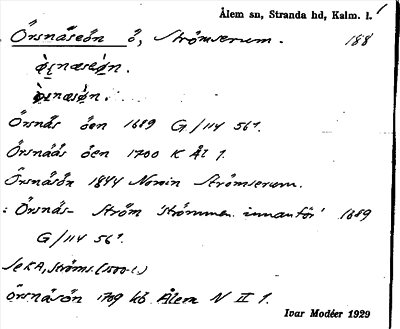 Ålem sn, Stranda hd, Kalm. l. 1
Örsnäseön ö, Strömserum. 188
Örsnäs öen 1689 G/114 56¹.
Örsnääs öen 1700 K Ål 1.
Örsnäsön 1844 Norin Strömserum.
: Örsnäs- Ström 'Strömmen innanför' 1689
G/114 56¹.
Se KA, Ströms. (1500-t.)
örsnäsön 1709 kb Ålem N II 1.
Ivar Modéer 1929